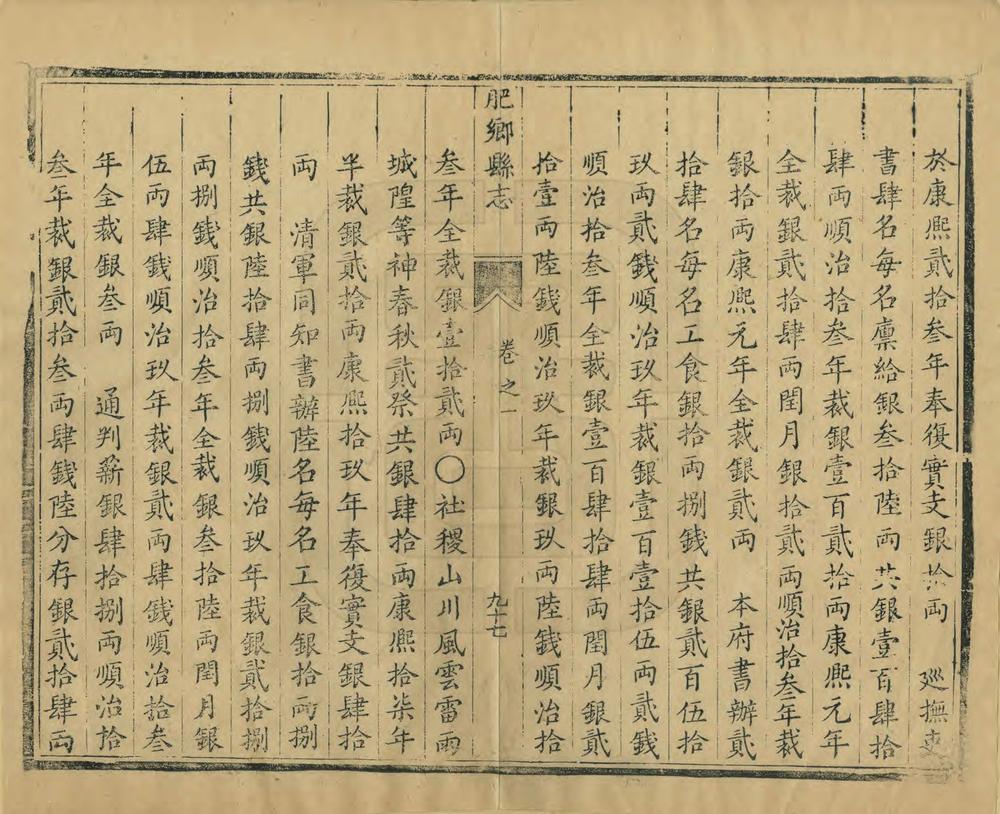 於康熙貳拾叁年奉復實支銀拾兩　廵撫吏
書肆名每名廪給銀叁拾陸兩共銀壹百肆拾
肆兩順治拾叁年裁銀壹百貳拾兩康熙元年
全裁銀貳拾肆兩閏月銀拾貳兩順治拾叁年裁
銀拾兩康熙元年全裁銀貳兩　本府書辦貳
拾肆名每名工食銀拾兩捌錢共銀貳百伍拾
玖兩貳錢順治玖年裁銀壹百壹拾伍兩貳錢
順治拾叁年全裁銀壹百肆拾肆兩閏月銀貳
拾壹兩陸錢順治玖年裁銀玖兩陸錢順治拾
肥鄉縣志　卷之一　九十七
叁年全裁銀壹拾貳兩〇社稷山川風雲雷雨
城隍等神春秋貳祭共銀肆拾兩康熙拾柒年
半裁銀貳拾兩康熙拾玖年奉復實支銀肆拾
兩　清軍同知書辦陸名每名工食銀拾兩捌
錢共銀陸拾肆兩捌錢順治玖年裁銀貳拾捌
兩捌錢順治拾叁年全裁銀叁拾陸兩閏月銀
伍兩肆錢順治玖年裁銀貳兩肆錢順治拾叁
年全裁銀叁兩　通判薪銀肆拾捌兩順治拾
叁年裁銀貳拾叁兩肆錢陸分存銀貳拾肆兩